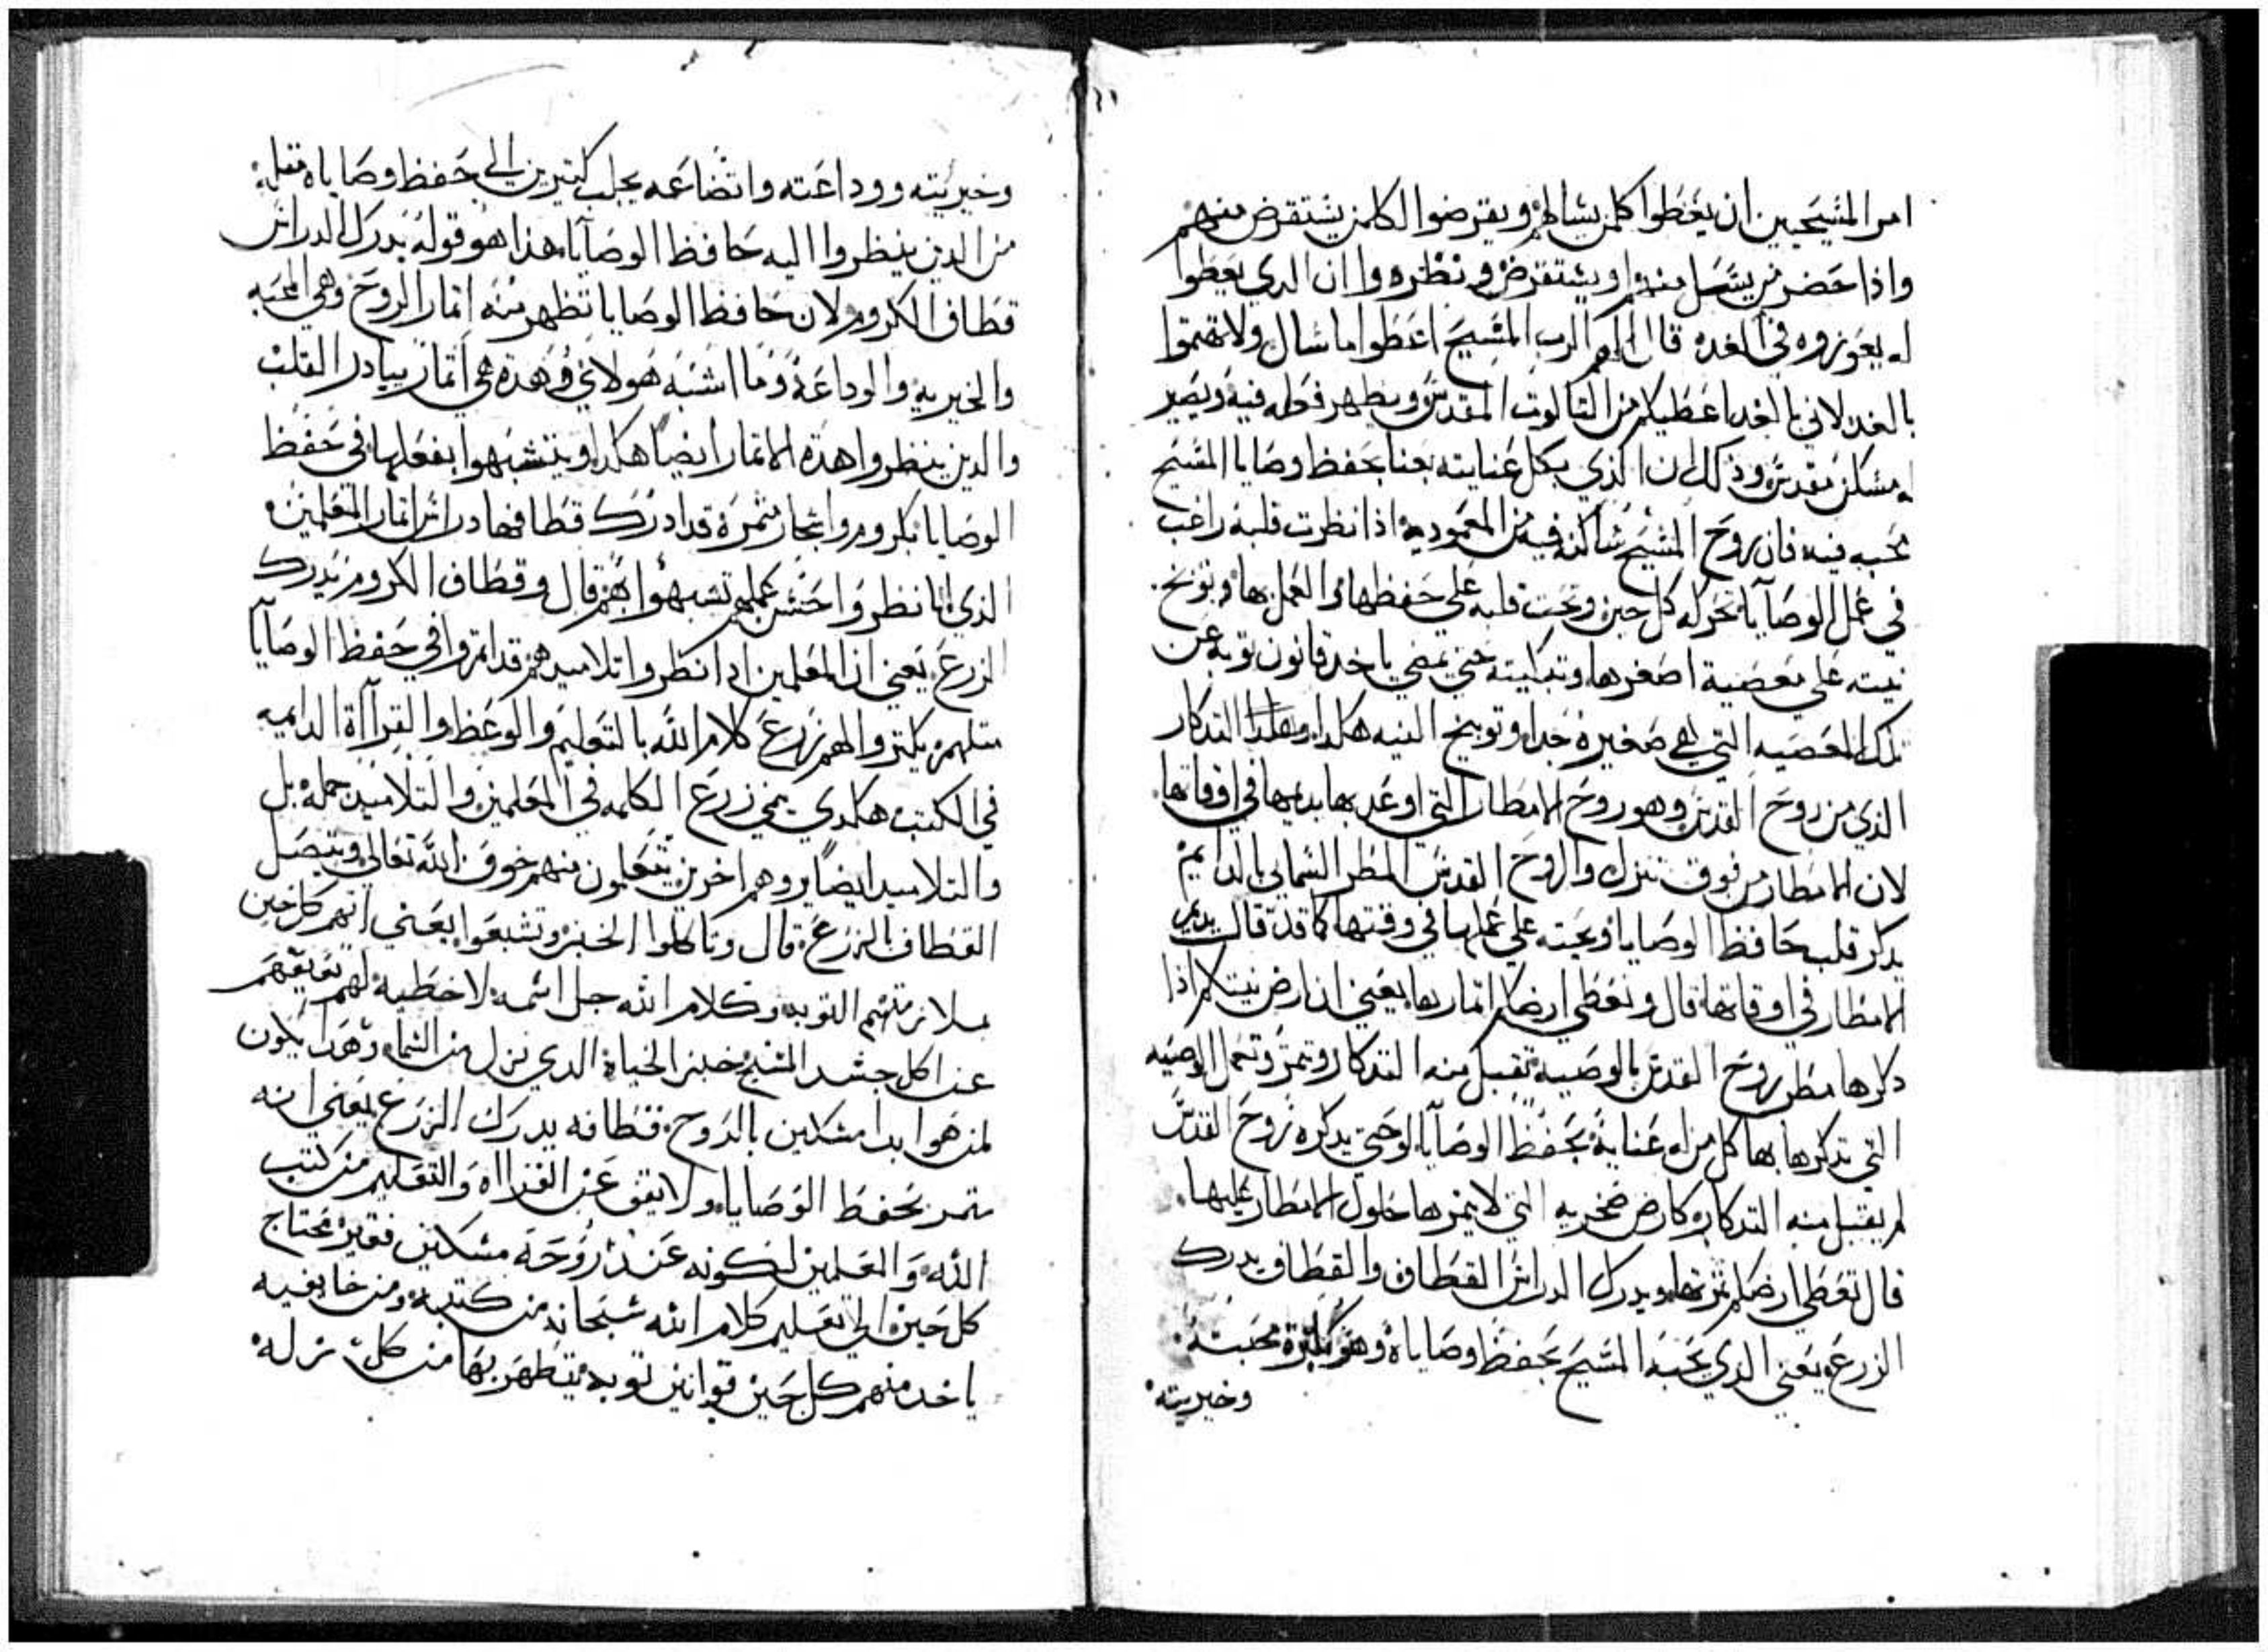 امر المسيحيين ان يعطوا كلمن يسالهم ويقرضوا الكلمن يستقرض منهم
واذا حضر من يسل منهم او يستقرض ونظروا ان الدي يعطوا
له يعوزوه في الغد قال لهم الرب المسيح اعطوا ما سال ولا تهتموا
بالغد لاني بالغد اعطيكم من الثالوت المقدس ويطهر فعله فيه ويصير
له مسكن مقدس وذلك ان الذي بكل عنايته يعنا بحفظ وصايا المسيح
محبه فيه فان روح المسيح ساكنه فيه من المعموديه اذا نظرت قلبه راغب
في عمل الوصايا تحركه كل حين وتحت قلبه علي حفظها والعمل بها وتوبخ
نيته علي معصية اصغرها وتبكيته حتي يمضي ياخد قانون توبه عن
تلك المعصيه التي هي صغيره جدا وتوبيخ النيه هكدا وهدا التدكار
الذي من روح القدس وهو روح الامطار التي اوعد بها يديمها في اوقاتها
لان الامطار من فوق تنزل والروح القدس المطر السمايي بالدايم
يدكر قلب حافظ الوصايا ويحته علي عملها في وقتها كما قد قال يديم
الامطار في اوقاتها قال وتعطي ارضكم اتمارها يعني ان ارض نيتكم اذا
دكرها مطر روح القدس بالوصيه تقبل منه التدكار وتمر وتعمل الوصيه
التي تدكرها بها كل من له عناية بحفظ الوصايا لوحتي يدكره روح القدس
لم يقبل منه التدكار كارض صخريه التي لا يمرها حلول الامطار عليها
قال تعطي ارضكم ثمرتها ويدرك الدراس القطاف والقطاف يدرك
الزرع يعني الدي يحبه المسيح بحفظ وصاياه وهو بكترة محبته
وخيريته
وخيريته ووداعته واتضاعه يجلب كتيرين الي حفظ وصاياه مثله
من الدين ينظروا اليه حافظ الوصايا هذا هو قوله يدرك الدراس
قطاف الكروم لان حافظ الوصايا تظهر منه اتمار الروح وهي المحبه
والخيريه والوداعة وما اشبه هولاي وهده هي اتمار بيادر القلب
والدين ينظروا هده الاتمار ايضا هكدا ويتشبهوا بفعلها في حفظ
الوصايا ككروم واشجار مثمرة قد ادرك قطافها دراس اتمار المعلمين
الذي لما نظروا حسن عملهم تشبهوا بهم قال وقطاف الكروم يدرك
الزرع يعني ان المعلمين ادا نظروا تلاميدهم قد اتمروا في حفظ الوصايا
متلهم يكتروا لهم زرع كلام الله بالتعليم والوعظ والقرآة الدايميه
في الكتب هكدي يمي زرع الكلمه في المعلمين والتلاميد جمله بل
والتلاميد ايضا يروهم اخرين يتعلمون منهم خوف الله تعالي ويتصل
القطاف بالزرع قال وتاكلوا الخبز وتشبعوا يعني انهم كل حين
بملازمتهم التوبه وكلام الله جل اسمه لا خطيه لهم تعيقهم
عن اكل جسد المسيح خبز الحياة الدي نزل من السماء وهدا يكون
لمن هو ابدا مسكين بالروح قطافه يدرك الزرع يعني انه
يتمر بحفظ الوصايا ولا يعق عن القرااه والتعليم من كتب
الله والمعلمين لكونه عند روحه مسكين فقير محتاج
كل حين الي تعليم كلام الله سبحانه من كتبه ومن خايفيه
ياخد منهم كل حين قوانين توبه يتطهر بها من كل زله